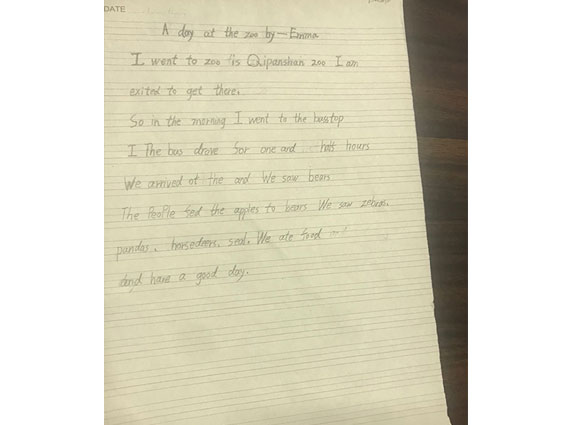 DATE
A day at the zoo by—Emma
I went to zoo is Qipanshan zoo I am
exited to get there.
So in the morning I went to the busstop
I The bus drove for one and half hours
We arrived at the and We saw bears
The People fed the apples to bears We saw zebras.
pandas. horsedeers. seal. We ate food and
dand have a good day.